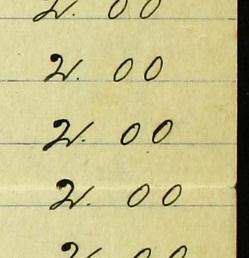 2. 00
2. 00
2. 00
2. 00
2. 00